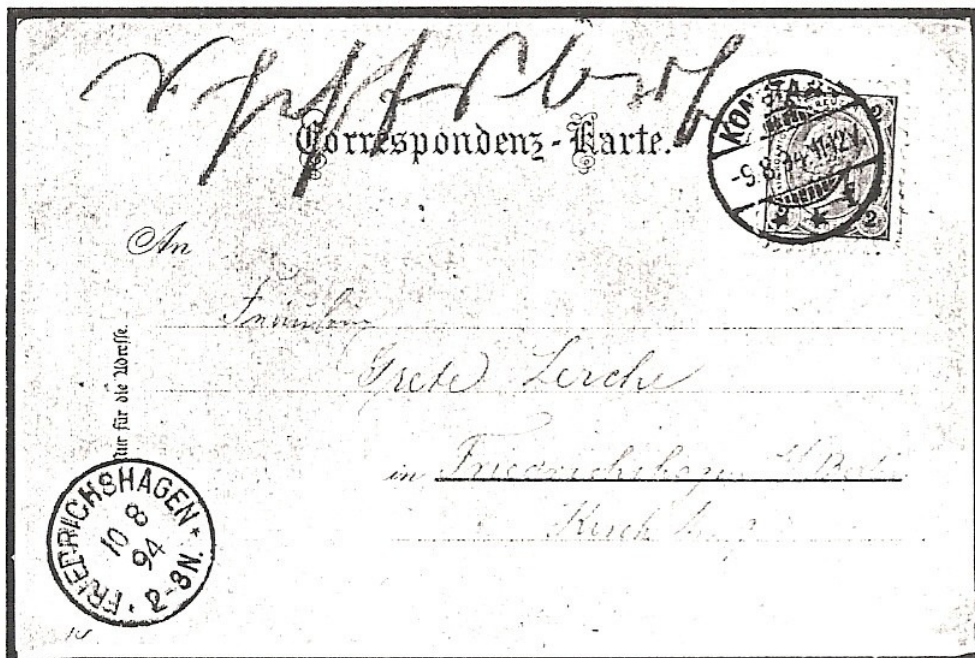 Correspondenz-Karte.
KON
-9.8.94.11-12V.
2
2
An
Fräulein
Grete Lerche
in Friedrichshagen b/Berlin
Nur für die Adresse.
FRIEDRICHSHAGEN
10 8
94
2-3N.